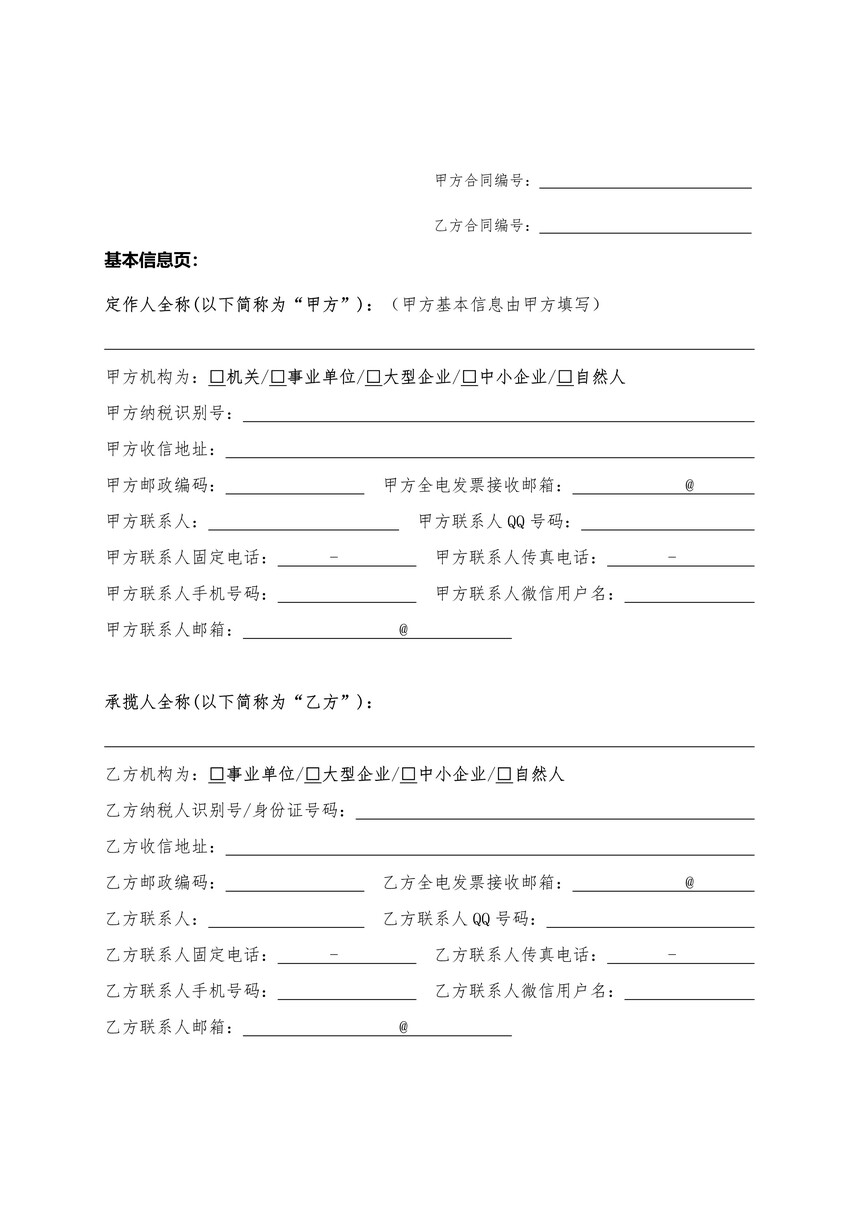 甲方合同编号：
乙方合同编号：
基本信息页：
定作人全称(以下简称为“甲方”)：（甲方基本信息由甲方填写）
甲方机构为：□机关/□事业单位/□大型企业/□中小企业/□自然人
甲方纳税识别号：
甲方收信地址：
甲方邮政编码： 甲方全电发票接收邮箱： @
甲方联系人： 甲方联系人 QQ 号码：
甲方联系人固定电话： － 甲方联系人传真电话： －
甲方联系人手机号码： 甲方联系人微信用户名：
甲方联系人邮箱： @
承揽人全称(以下简称为“乙方”)：
乙方机构为：□事业单位/□大型企业/□中小企业/□自然人
乙方纳税人识别号/身份证号码：
乙方收信地址：
乙方邮政编码： 乙方全电发票接收邮箱： @
乙方联系人： 乙方联系人 QQ 号码：
乙方联系人固定电话： － 乙方联系人传真电话： －
乙方联系人手机号码： 乙方联系人微信用户名：
乙方联系人邮箱： @